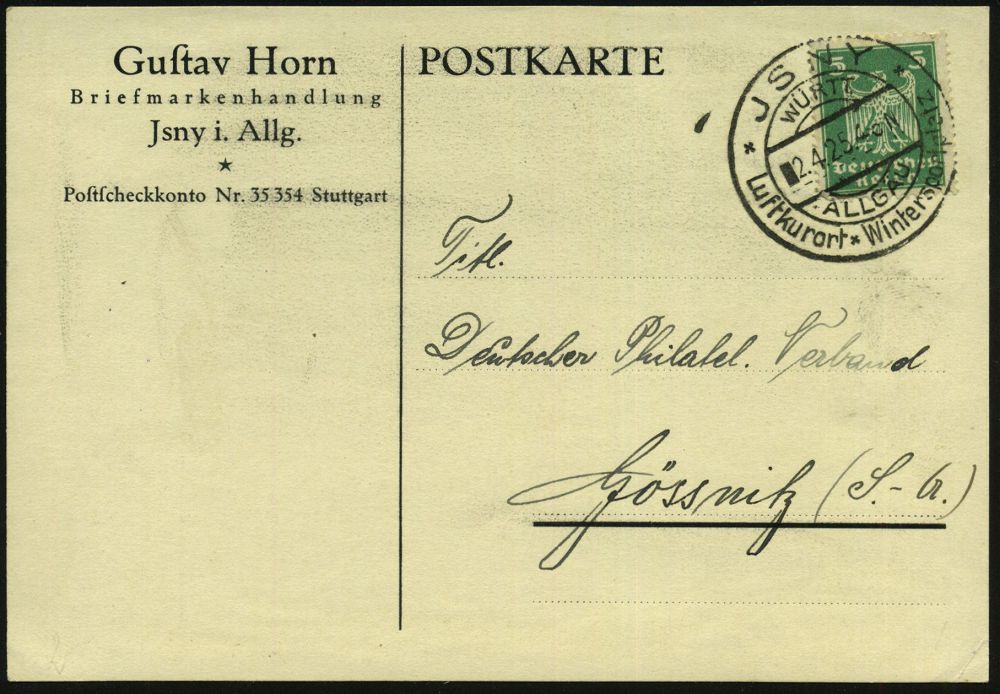 Guſtav Horn
Briefmarkenhandlung
Jsny i. Allg.
Poſtſcheckkonto Nr. 35 354 Stuttgart
POSTKARTE
5 5
Deutsches
Reich
* JSNY *
WÜRTT.
2.4.25.4-5N
ALLGÄU
Luftkurort * Wintersportplatz
Titl.
Deutscher Philatel. Verband
Gössnitz (S.-A.)